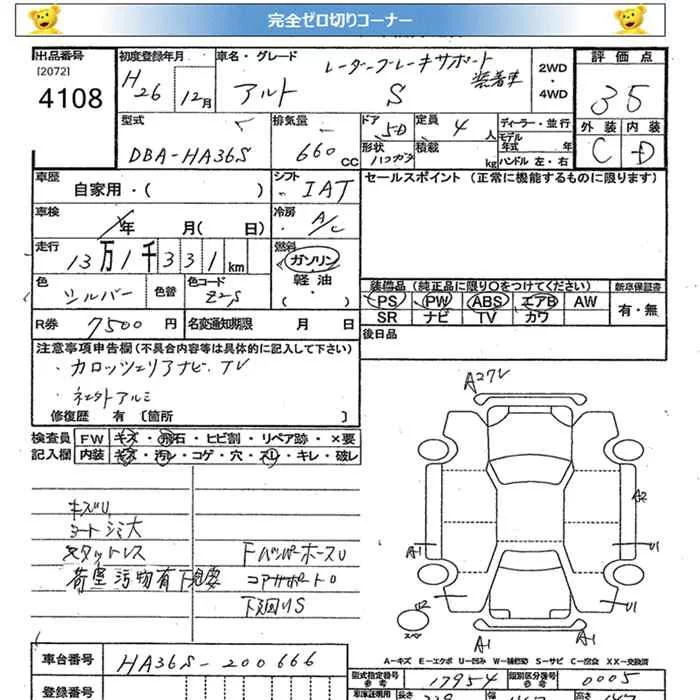 完全ゼロ切りコーナー
出品番号
[2072]
4108
初度登録年月
H26年12月
車名・グレード
レーダーブレーキサポート装着車
アルト S
2WD・4WD
評価点
35
外装 内装
C D
型式
DBA-HA36S
排気量
660cc
ドア 5D
形状 ハコガタ
定員 4人
積載 kg
ディーラー・並行
モデル年式 年
ハンドル 左・右
車歴
自家用・( )
シフト
IAT
セールスポイント (正常に機能するものに限ります)
車検
年 月( 日)
冷房
A/C
走行
13万1千331km
燃料
ガソリン
軽油
( ・ )
色
シルバー
色替
色コード
Z2S
装備品 (純正品に限り○をつけてください)
新車保証書
PS PW ABS エアB AW
有・無
SR ナビ TV カワ
R券 7500円
名変通知期限 月 日
後日品
注意事項申告欄(不具合内容等は具体的に記入して下さい)
・カロッツェリアナビ、TV
・社外アルミ
修復歴 有 〔箇所 〕
検査員 FW キズ・飛石・ヒビ割・リペア跡・×要
記入欄 内装 キズ・汚レ・コゲ・穴・スレ・キレ・破レ
キズU
シートシミ大
スタットレス
荷室汚物有 下見要
FバンパーホースU
コアサポートU
下廻りS
A27U
A2
A1
U1
U2
U1
スペア
A1
A1
A-キズ E-エクボ U-凹み W-補修跡 S-サビ C-腐食 XX-交換済
車台番号
HA36S-200666
登録番号
型式指定番号
参考
17954
類別区分番号
参考
0005
車庫証明用
参考
長さ
幅
高さ